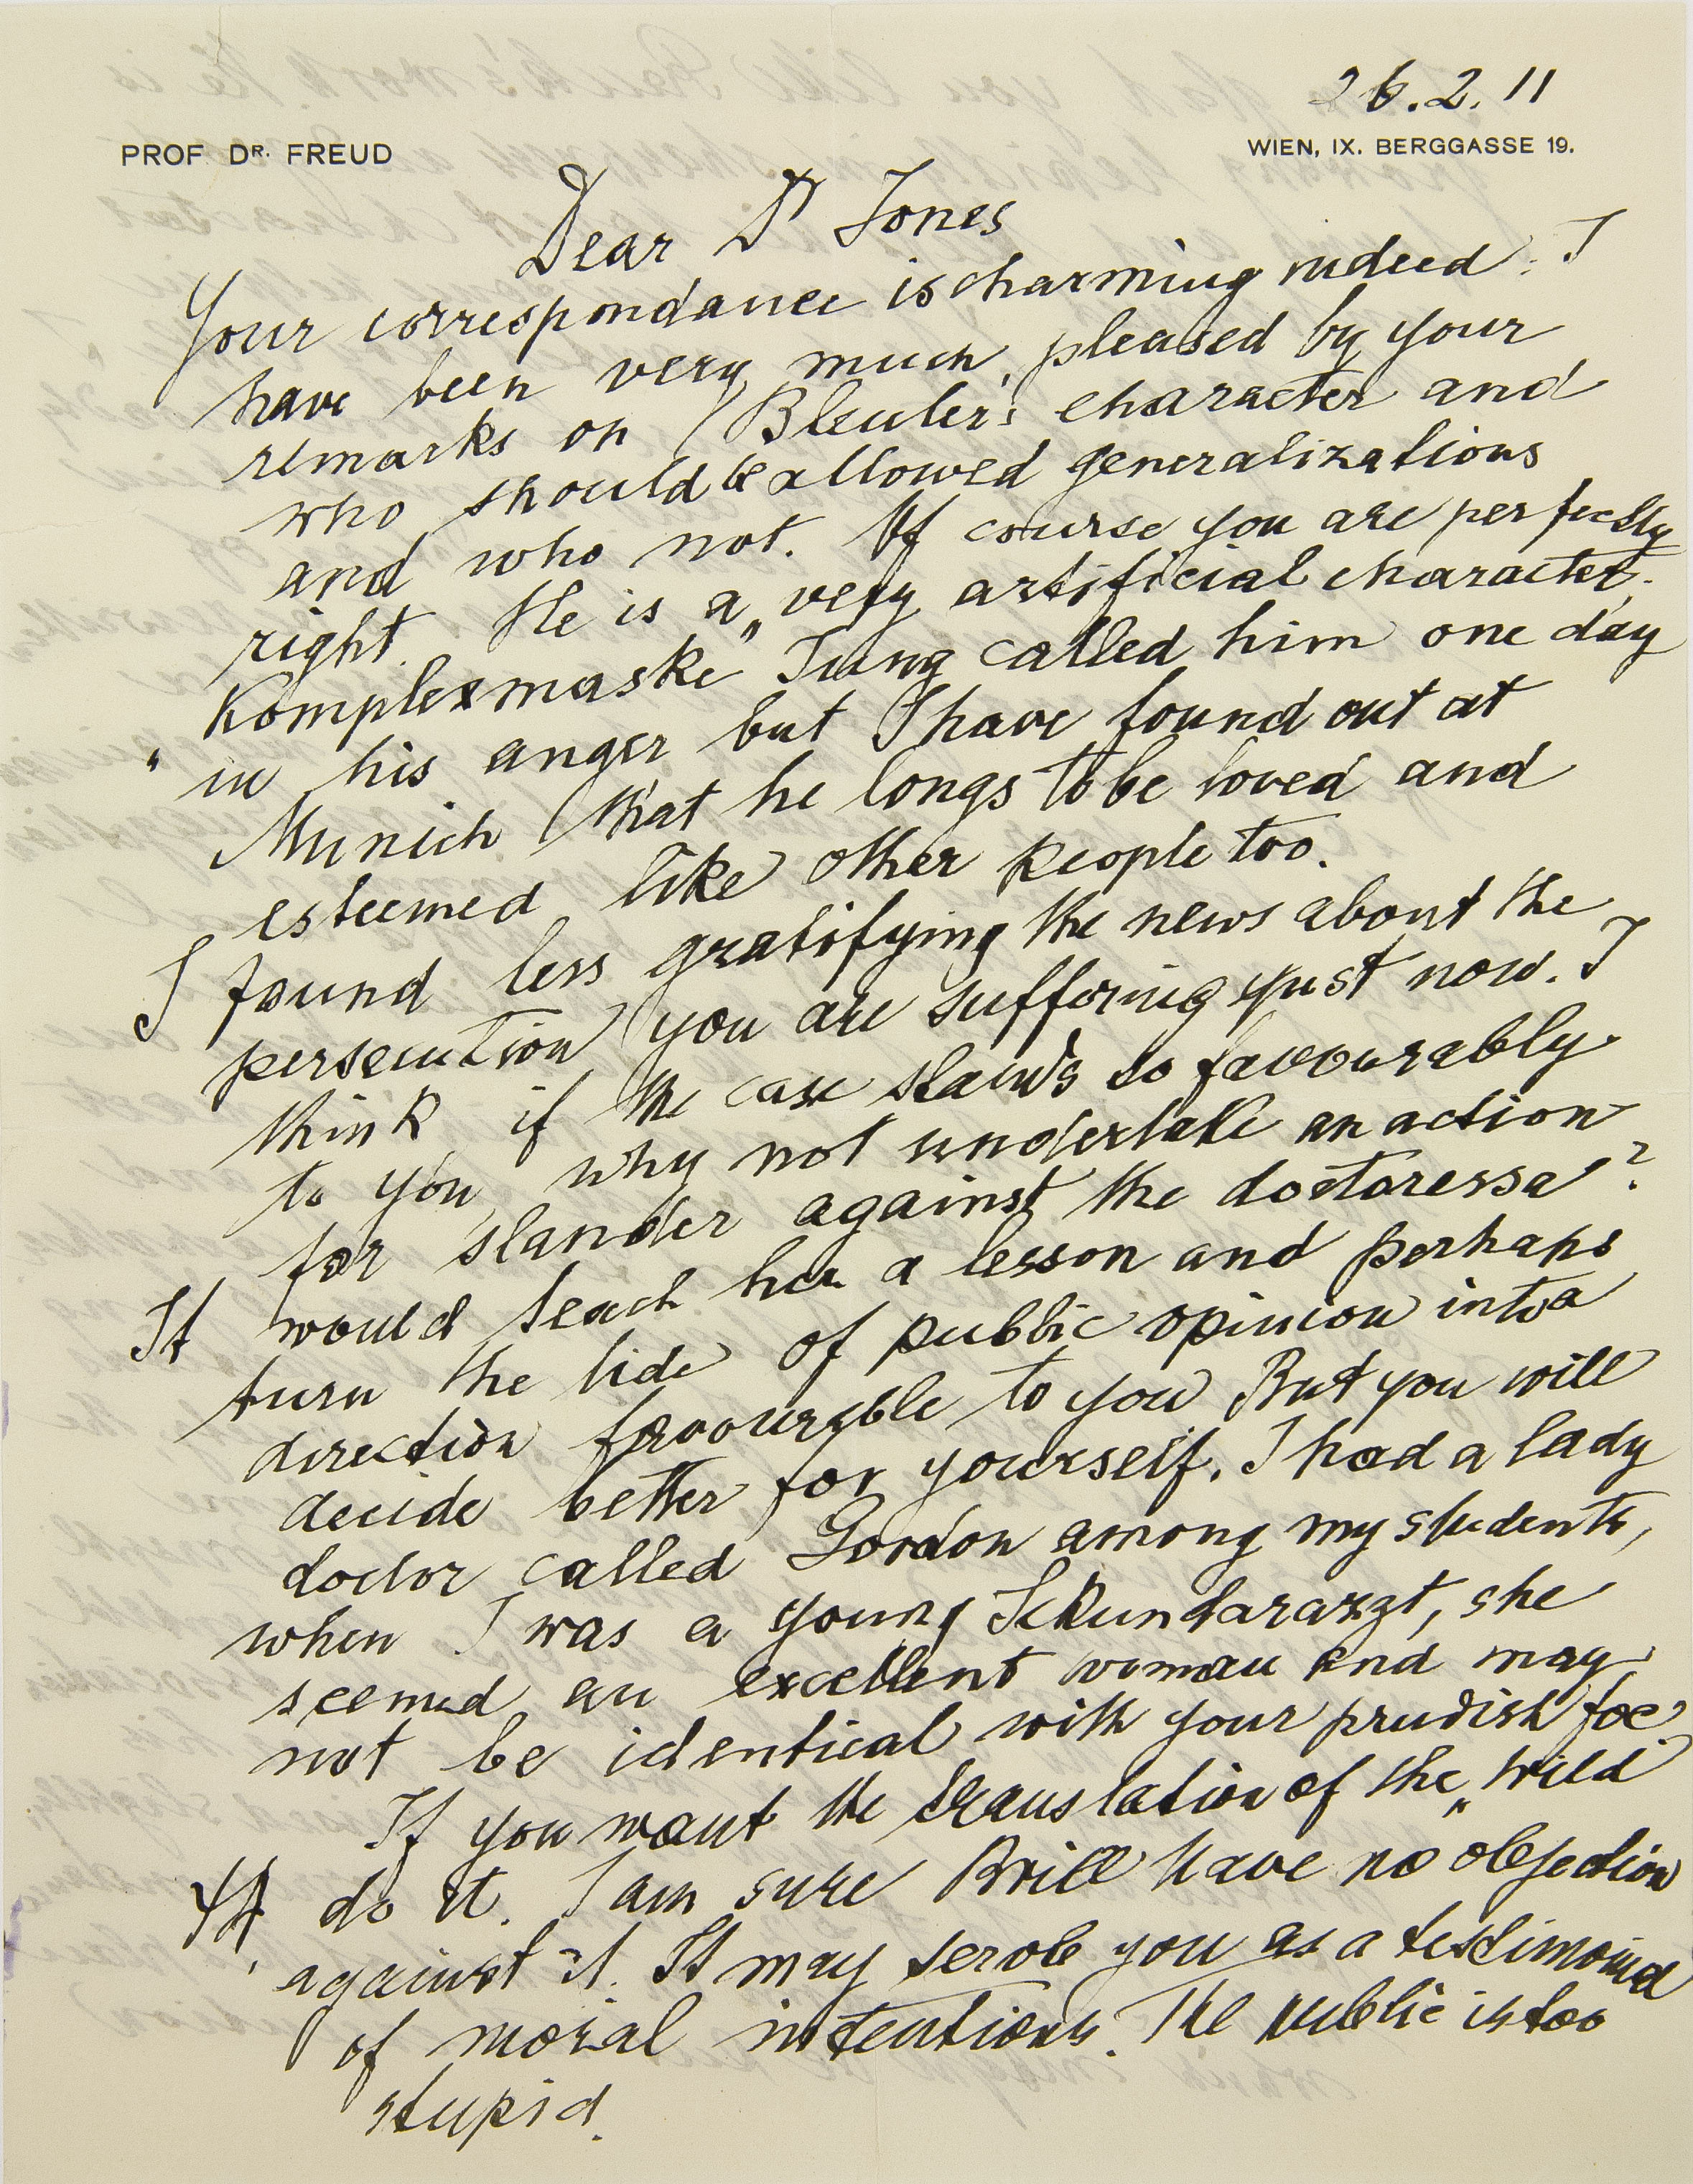 26.2.11
PROF DR. FREUD
WIEN, IX. BERGGASSE 19.
Dear Dr Jones
Your correspondance is charming indeed. I
have been very much pleased by your
remarks on Bleuler's character and
who should be allowed generalizations
and who not. Of course you are perfectly
right. He is a very artificial character.
„Komplexmaske" Jung called him one day
in his anger but I have found out at
Munich that he longs to be loved and
esteemed like other people too.
I found less gratifying the news about the
persecution you are suffering just now. I
think if the case stands so favourably
to you, why not undertake an action
for slander against the doctoressa?
It would teach her a lesson and perhaps
turn the tide of public opinion into a
direction favourable to you. But you will
decide better for yourself. I had a lady
doctor called Gordon among my students,
when I was a young Sekundararzt, she
seemed an excellent woman and may
not be identical with your prudish foe.
If you want the translation of the „Wild
ΨA do it. I am sure Brill have no objection
against it. It may serve you as a testimonial
of moral intentions. The public is too
stupid.